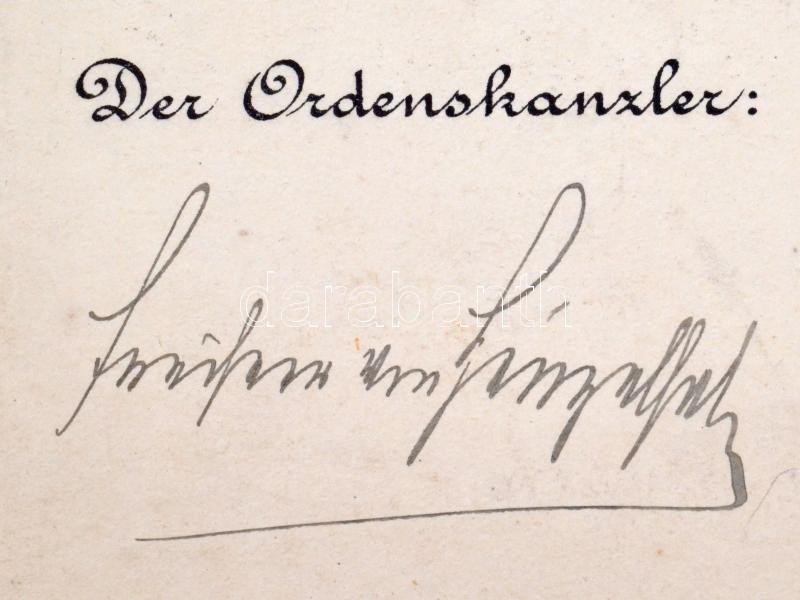 Der Ordenskanzler:
darabanth
Freiherr von